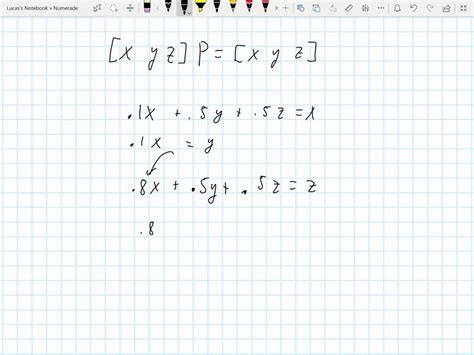 Lucas's Notebook » Numerade
[x y z] P = [x y z]
.1x + .5y + .5z = x
.1x = y
.8x + .5y + .5z = z
.8